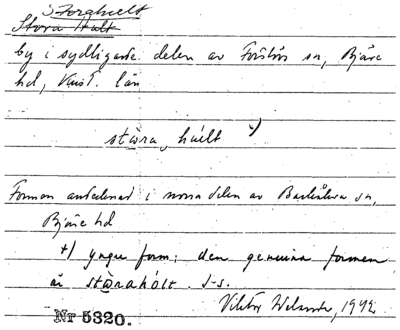 Storahult
Stora Hult
by i sydligaste delen av Förslöv sn, Bjäre
hd, Krist. län
stɷra, húlt +)
Formen antecknad i norra delen av Barkåkra sn,
Bjäre hd
+) yngre form; den genuina formen
är stɷrahólt. S-s.
Viktor Welander, 1942
Nr 5320.